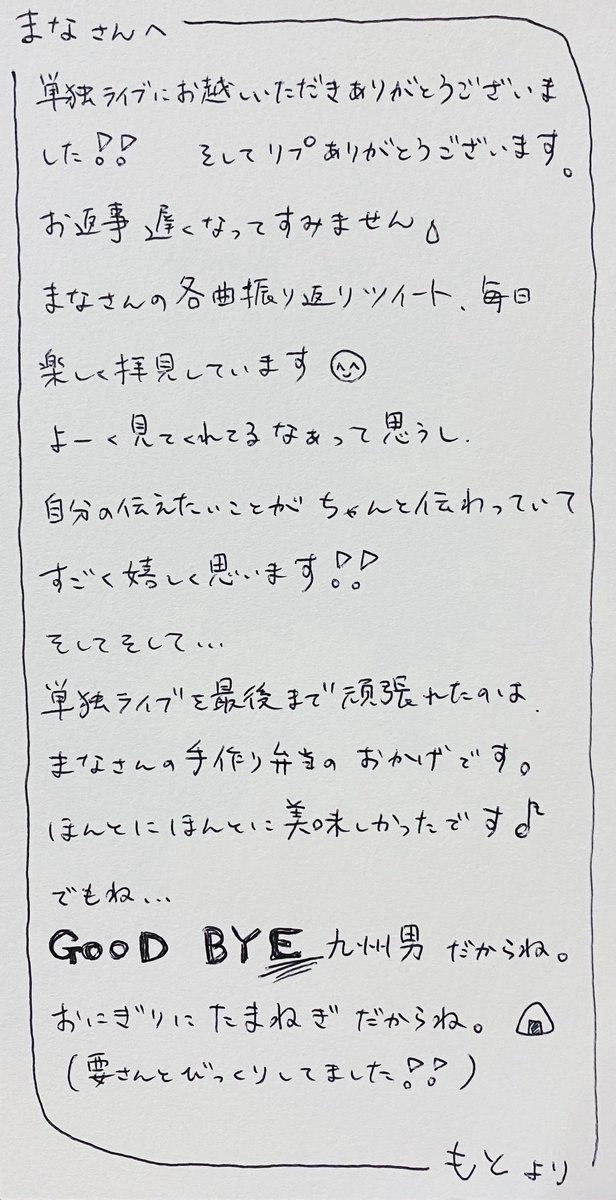 まなさんへ
単独ライブにお越しいただきありがとうございま
した!! そしてリプありがとうございます。
お返事遅くなってすみません
まなさんの各曲振り返りツイート、毎日
楽しく拝見しています
よーく見てくれてるなぁって思うし、
自分の伝えたいことがちゃんと伝わっていて
すごく嬉しく思います!!
そしてそして...
単独ライブを最後まで頑張れたのは、
まなさんの手作り弁当のおかげです。
ほんとにほんとに美味しかったです♪
でもね...
GOOD BYE 九州男だからね。
おにぎりにたまねぎだからね。
(要さんとびっくりしてました!!)
もとより